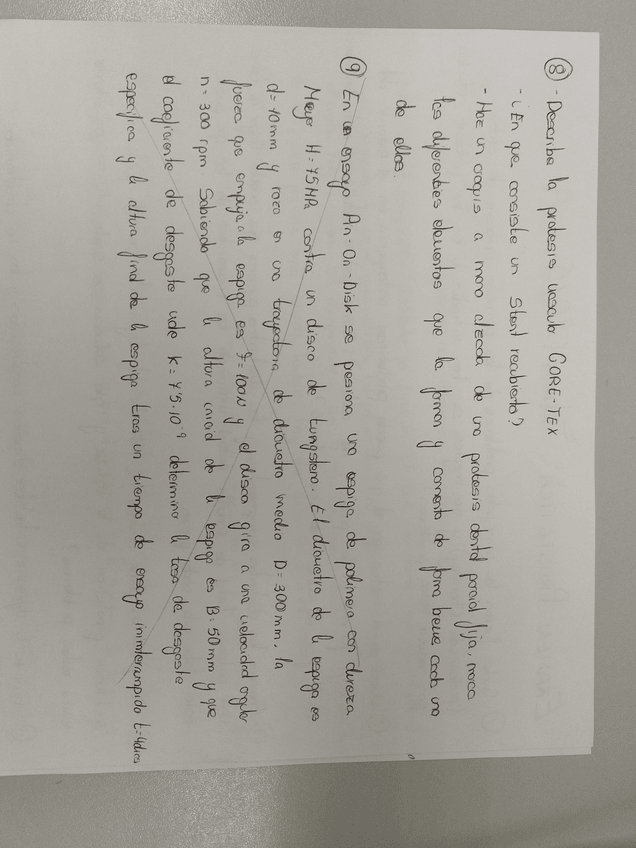 ⑧ - Describe la protesis vascular GORE-TEX
- ¿En que consiste un Stent recubierto?
- Haz un croquis a mano alzada de una protesis dental parcial fija, marca
los diferentes elementos que la forman y comenta de forma breve cada uno
de ellos.
⑨ En un ensayo Pin-On-Disk se presiona una espiga de polimero con dureza
Meyer H=75MPa contra un disco de tungsteno. El diametro de la espiga es
d=10mm y roza en una trayectoria de diametro medio D=300mm, la
fuerza que empuja a la espiga es F=100N y el disco gira a una velocidad angular
n=300 rpm Sabiendo que la altura inicial de la espiga es B=50mm y que
el coeficiente de desgaste vale K=7'5·10⁻⁹ determina la tasa de desgaste
especifica y la altura final de la espiga tras un tiempo de ensayo ininterrumpido t=4dias